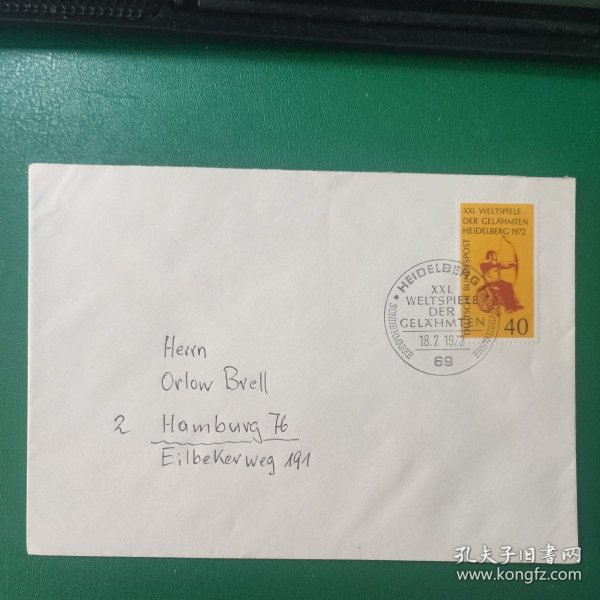 XXI. WELTSPIELE
DER GELÄHMTEN
HEIDELBERG 1972
DEUTSCHE BUNDESPOST
40
HEIDELBERG
XXI.
WELTSPIELE
DER
GELÄHMTEN
18.7.1972
69
SONDERMARKE
ERSTAUSGABE
Herrn
Orlow Brell
2 Hamburg 76
Eilbekerweg 191
孔夫子旧书网
www.kongfz.com